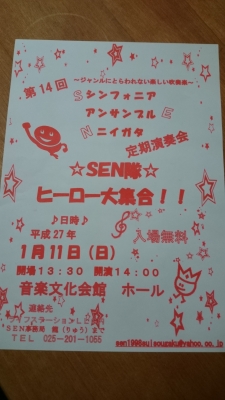 ～ジャンルにとらわれない楽しい吹奏楽～
第14回
Sシンフォニア
アンサンブルE
Nニイガタ
定期演奏会
☆SEN隊☆
ヒーロー大集合!!
♪日時♪
平成27年
入場無料
1月11日(日)
開場13:30 開演14:00
音楽文化会館 ホール
連絡先
SEN事務局 (りゅう)まで
TEL 025-201-1055
sen1996suisougaku@yahoo.co.jp